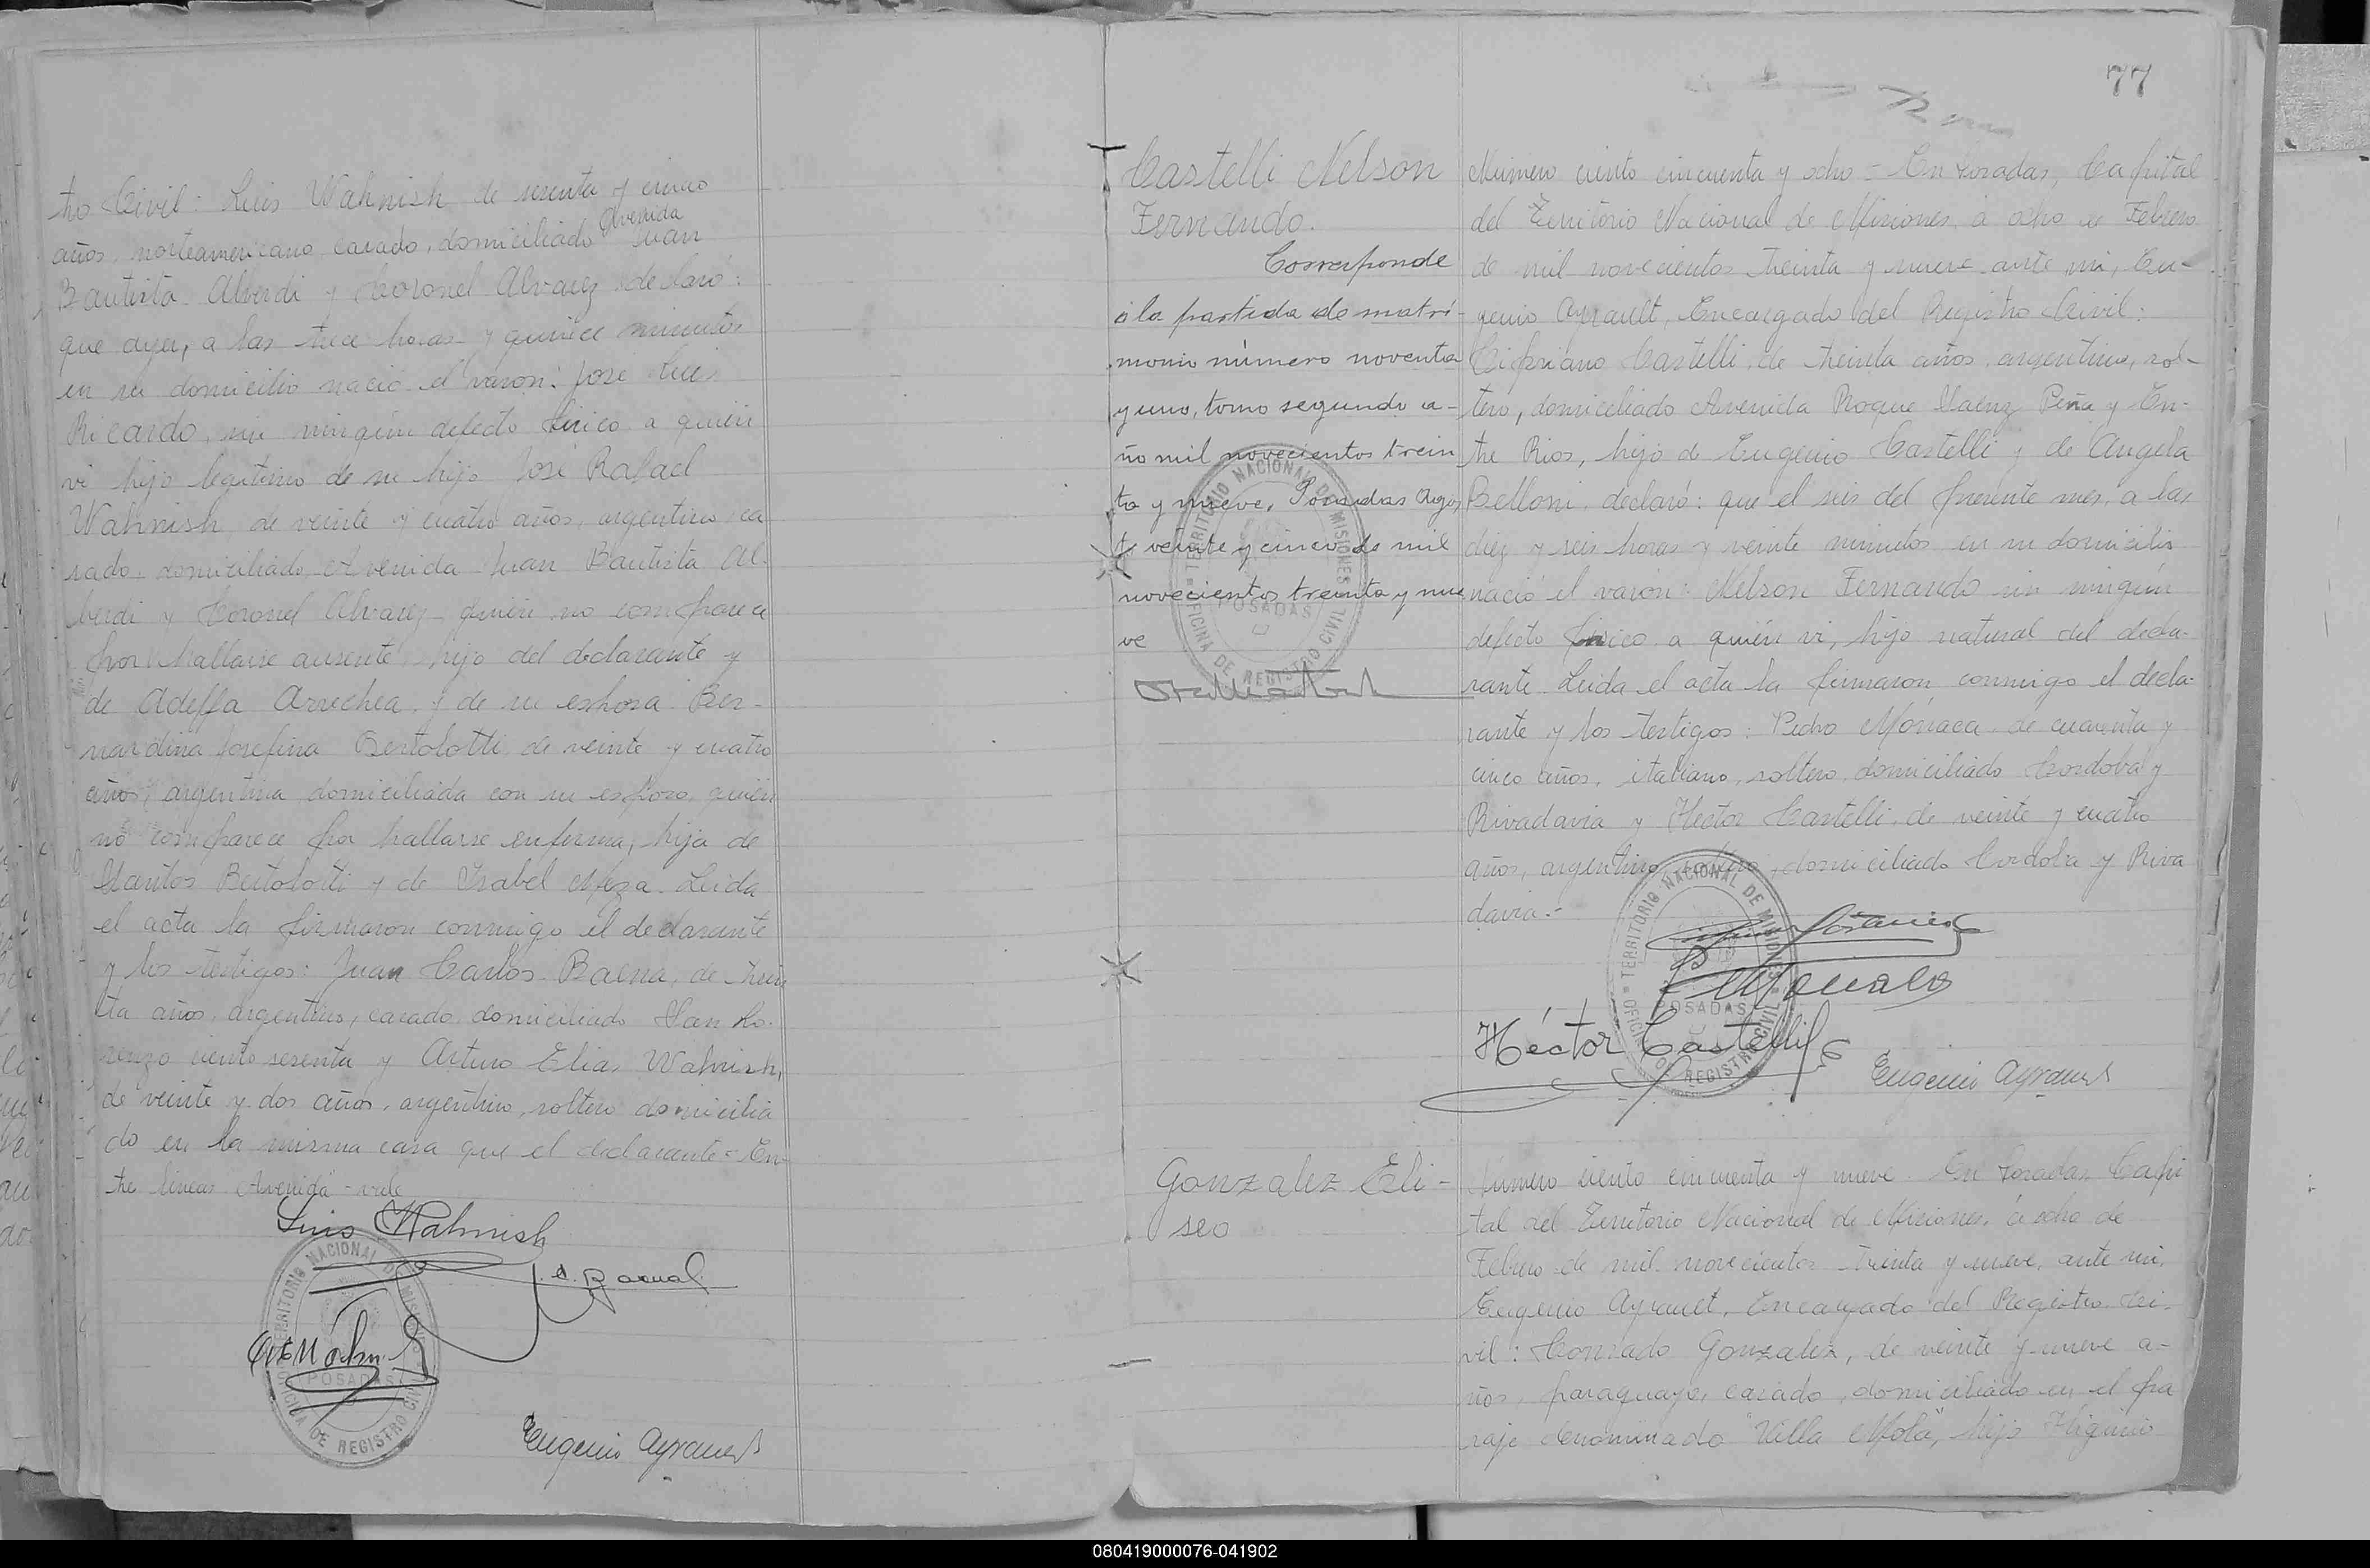 tro Civil: Luis Wahnish de sesenta y cinco
años, norteamericano, casado, domiciliado Avenida Juan
Bautista Alberdi y Coronel Alvarez declaró:
que ayer, a las trece horas y quince minutos
en su domicilio nació el varon: José Luis
Ricardo, sin ningún defecto físico a quien
vi hijo legítimo de su hijo José Rafael
Wahnish, de veinte y cuatro años, argentino, ca
sado, domiciliado Avenida Juan Bautista Al
berdi y Coronel Alvarez quien no comparece
por hallarse ausente, hijo del declarante y
de Adelfa Arrechea y de su esposa Ber-
nardina Josefina Bertolotti de veinte y cuatro
años, argentina, domiciliada con su esposo, quien
no comparece por hallarse enferma, hija de
Santos Bertolotti y de Isabel Meza. Leida
el acta la firmaron conmigo el declarante
y los testigos: Juan Carlos Baena, de trein
ta años, argentino, casado, domiciliado San Lo-
renzo ciento sesenta y Arturo Elias Wahnish,
de veinte y dos años, argentino, soltero domicilia
do en la misma casa que el declarante = En-
tre lineas Avenida - vale
Luis Wahnish
Eugenio Ayrault
TERRITORIO NACIONAL DE MISIONES
POSADAS
OFICINA DE REGISTRO CIVIL
77
Castelli Nelson
Fernando.
Corresponde
á la partida de matri-
monio número noventa
y uno, tomo segundo a-
ño mil novecientos trein
ta y nueve, Posadas Agos
to veinte y cinco de mil
novecientos treinta y nue
ve
TERRITORIO NACIONAL DE MISIONES
POSADAS
OFICINA DE REGISTRO CIVIL
Número ciento cincuenta y ocho = En Posadas, Capital
del Territorio Nacional de Misiones, á ocho de Febrero
de mil novecientos treinta y nueve ante mi, Eu-
genio Ayrault, Encargado del Registro Civil:
Cipriano Castelli, de treinta años, argentino, sol-
tero, domiciliado Avenida Roque Saenz Peña y En-
tre Rios, hijo de Eugenio Castelli y de Angela
Belloni, declaró: que el seis del presente mes, a las
diez y seis horas y veinte minutos en su domicilio
nació el varón: Nelson Fernando sin ningún
defecto físico a quién vi, hijo natural del decla-
rante. Leida el acta la firmaron conmigo el decla-
rante y los testigos: Pedro Mónaca de cuarenta y
cinco años, italiano, soltero, domiciliado Cordoba y
Rivadavia y Hector Castelli, de veinte y cuatro
años, argentino, soltero, domiciliado Cordoba y Riva
davia.-
Héctor Castelli
Eugenio Ayrault
TERRITORIO NACIONAL DE MISIONES
POSADAS
OFICINA DE REGISTRO CIVIL
Gonzalez Eli-
seo
Número ciento cincuenta y nueve. En Posadas Capi
tal del Territorio Nacional de Misiones, á ocho de
Febrero de mil novecientos treinta y nueve, ante mi,
Eugenio Ayrault, Encargado del Registro Ci-
vil: Conrado Gonzalez, de veinte y nueve a-
ños, paraguayo, casado, domiciliado en el pa
raje denominado "Villa Mola", hijo Higinio
080419000076-041902